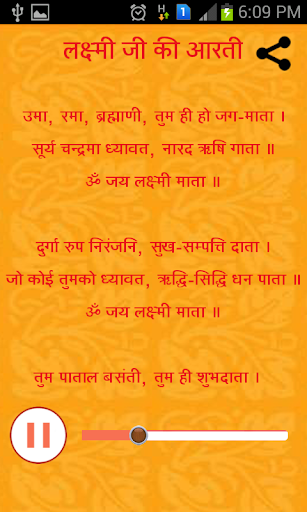 6:09 PM
लक्ष्मी जी की आरती
उमा, रमा, ब्रह्माणी, तुम ही हो जग-माता ।
सूर्य चन्द्रमा ध्यावत, नारद ऋषि गाता ॥
ॐ जय लक्ष्मी माता ॥
दुर्गा रुप निरंजनि, सुख-सम्पत्ति दाता ।
जो कोई तुमको ध्यावत, ऋद्धि-सिद्धि धन पाता ॥
ॐ जय लक्ष्मी माता ॥
तुम पाताल बसंती, तुम ही शुभदाता ।